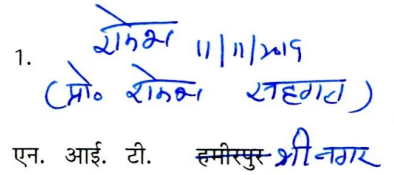 1. राकेश 11/11/2019
(प्रो. राकेश सहगल)
एन. आई. टी. हमीरपुर श्रीनगर